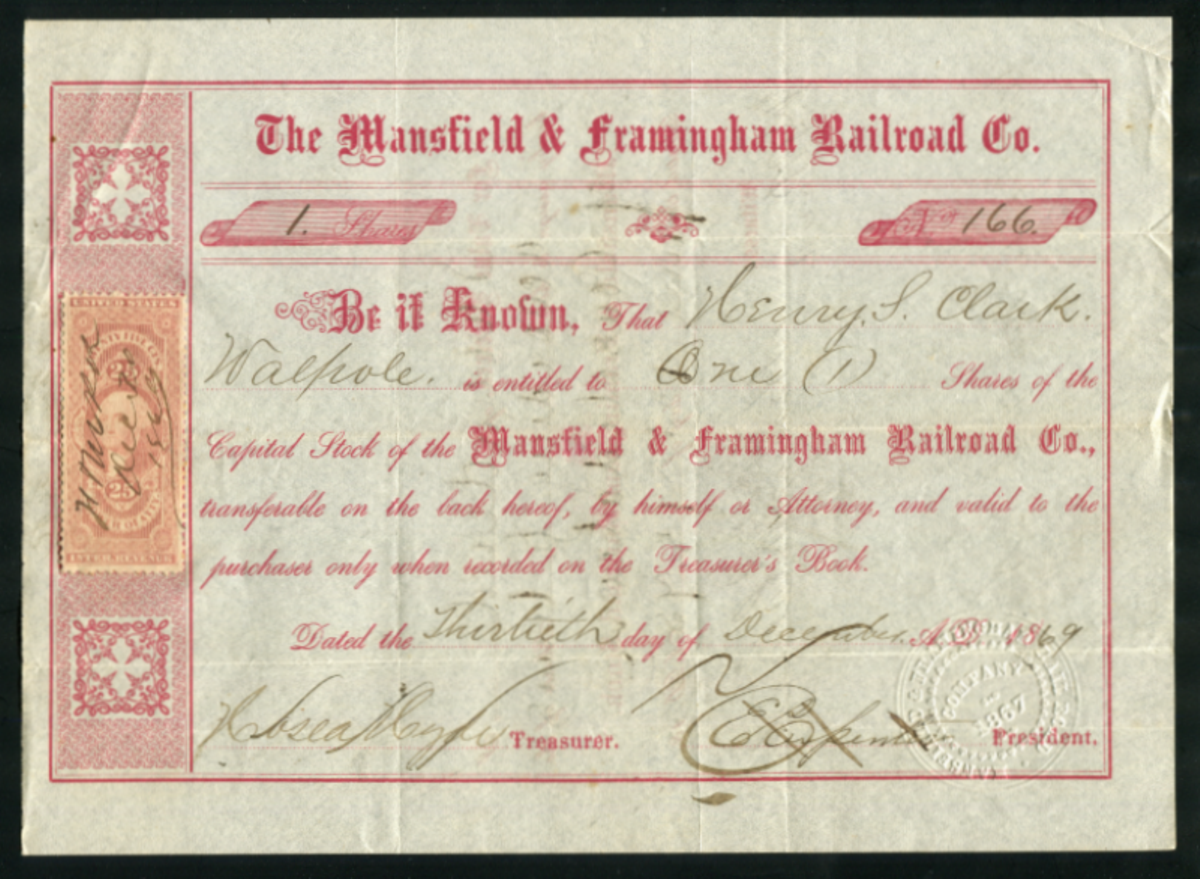 The Mansfield & Framingham Railroad Co.
1. Shares
No. 166.
Be it Known, That Henry. S. Clark.
Walpole. is entitled to One (1) Shares of the
Capital Stock of the Mansfield & Framingham Railroad Co.,
transferable on the back hereof, by himself or Attorney, and valid to the
purchaser only when recorded on the Treasurer's Book.
Dated the Thirtieth day of December. A.D. 1869
Treasurer.
President.
UNITED STATES
25
25
INTER. REVENUE
COMPANY
1867